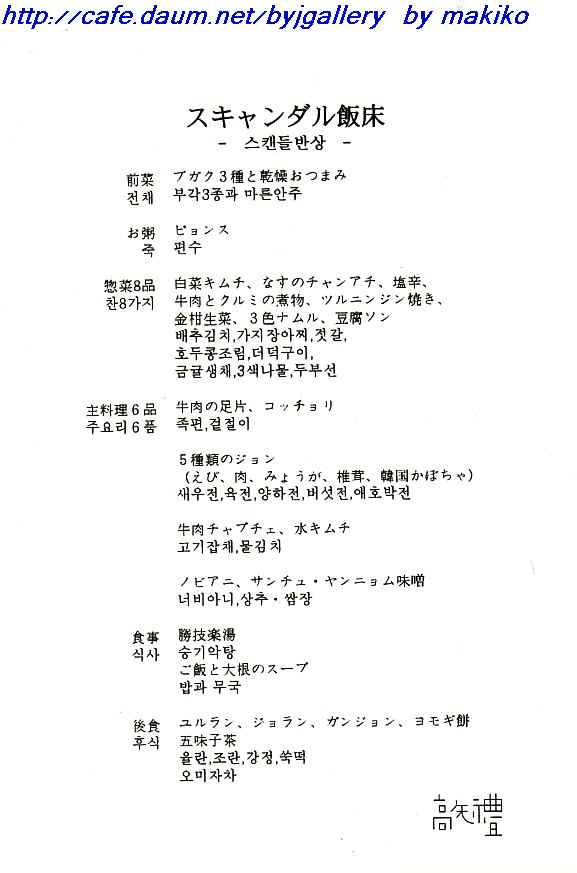 http://cafe.daum.net/byjgallery by makiko
スキャンダル飯床
- 스캔들반상 -
前菜 ブガク3種と乾燥おつまみ
전채 부각3종과 마른안주
お粥 ピョンス
죽 편수
惣菜8品 白菜キムチ、なすのチャンアチ、塩辛、
찬8가지 牛肉とクルミの煮物、ツルニンジン焼き、
金柑生菜、3色ナムル、豆腐ソン
배추김치,가지장아찌,젓갈,
호두콩조림,더덕구이,
금귤생채,3색나물,두부선
主料理6品 牛肉の足片、コッチョリ
주요리6품 족편,겉절이
5種類のジョン
(えび、肉、みょうが、椎茸、韓国かぼちゃ)
새우전,육전,양하전,버섯전,애호박전
牛肉チャプチェ、水キムチ
고기잡채,물김치
ノビアニ、サンチュ・ヤンニョム味噌
너비아니,상추·쌈장
食事 勝技楽湯
식사 승기악탕
ご飯と大根のスープ
밥과 무국
後食 ユルラン、ジョラン、ガンジョン、ヨモギ餅
후식 五味子茶
율란,조란,강정,쑥떡
오미자차
高矢禮